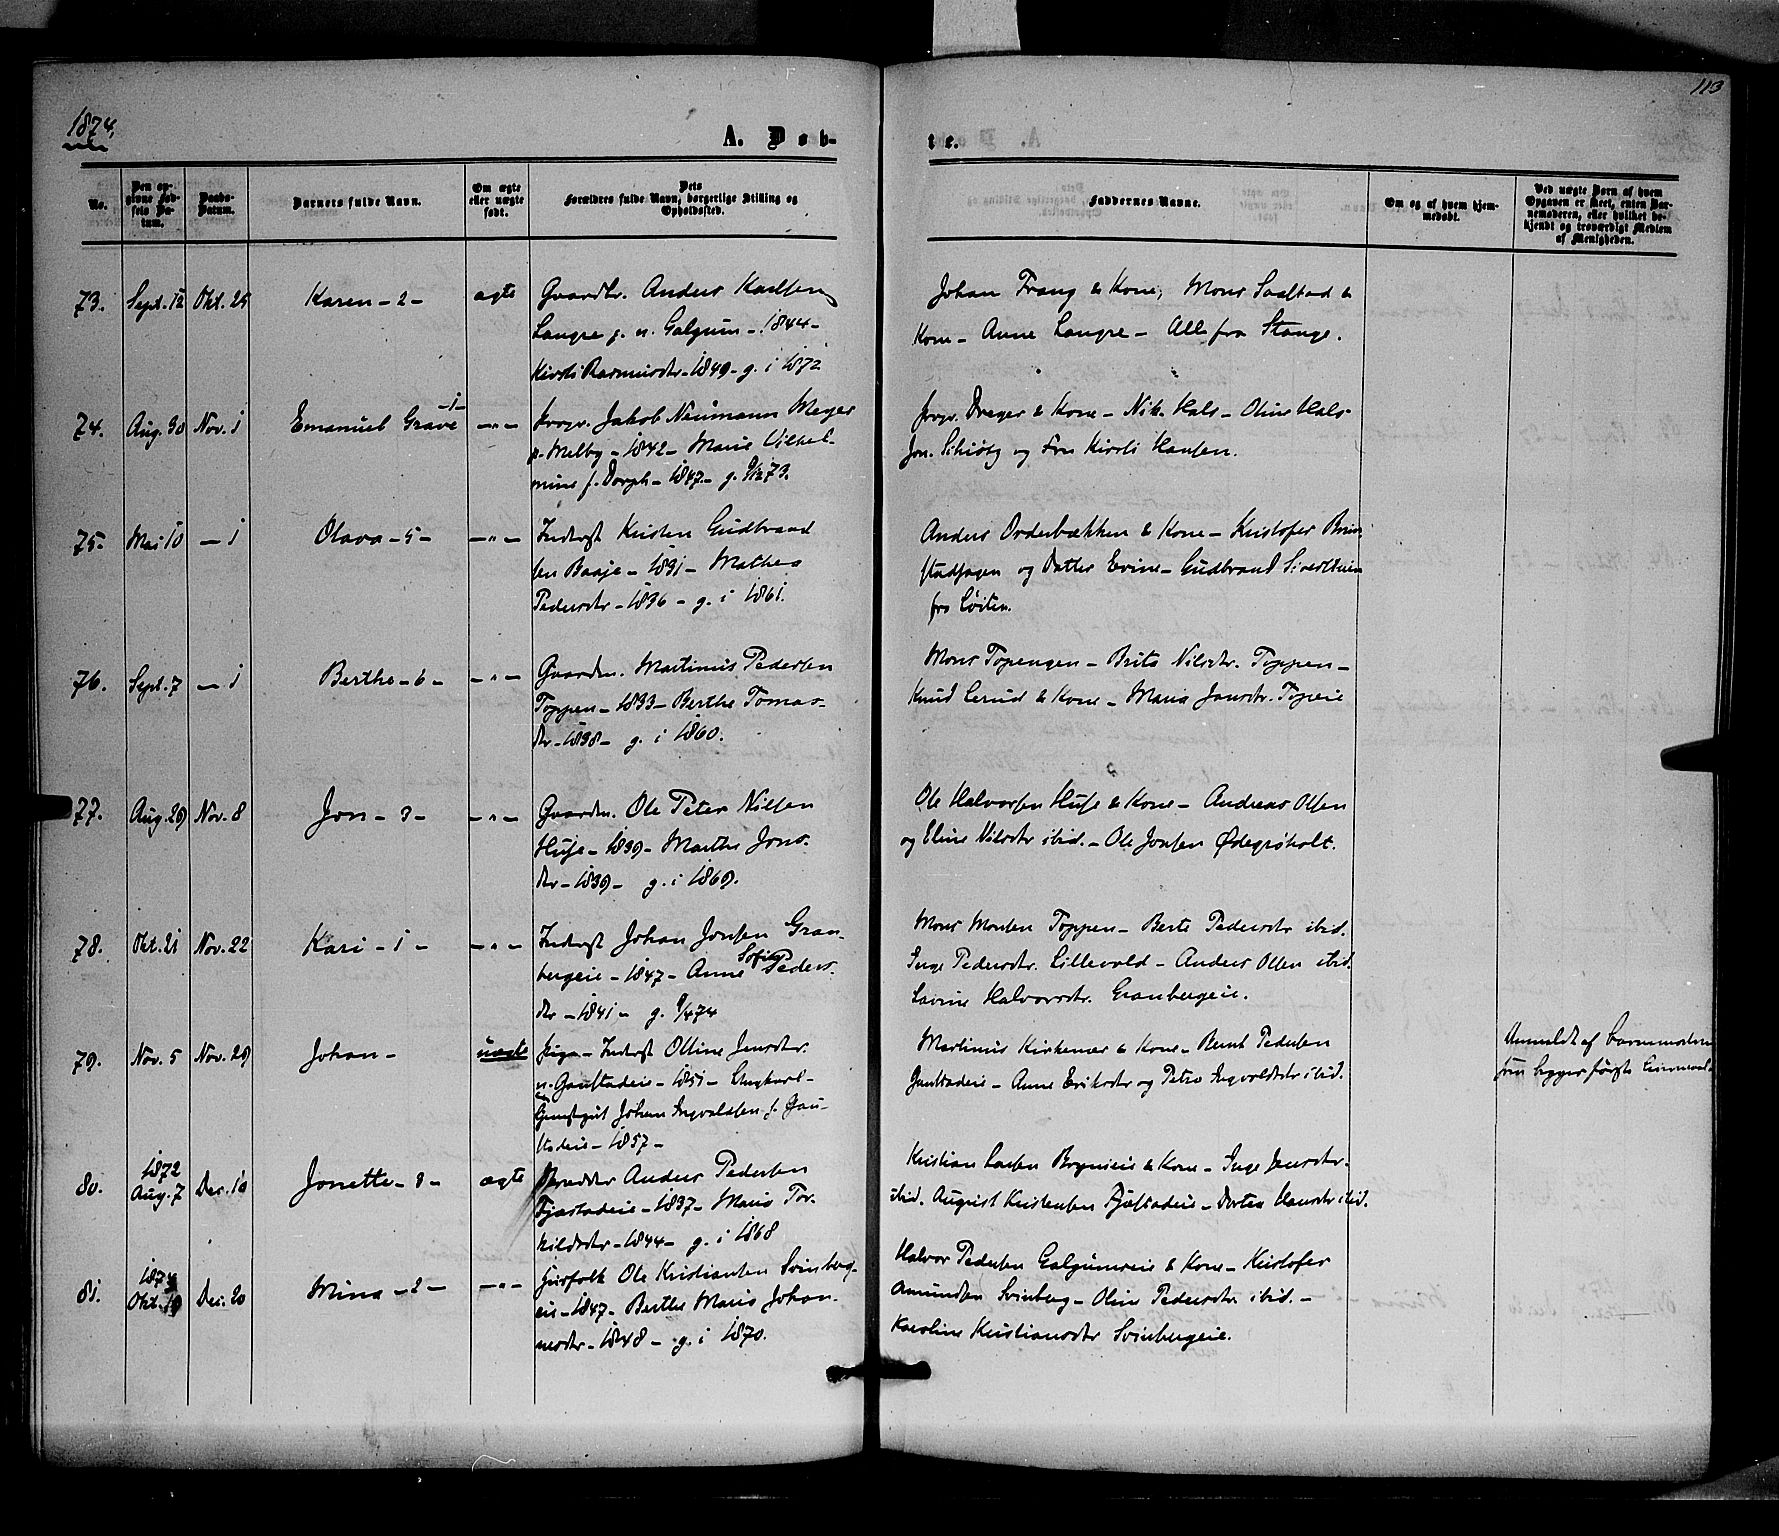 113
1874.
A. Døb-
te.
No.
Den op-
givne Fød-
sels Da-
tum.
Daabs-
Datum.
Barnets fulde Navn.
Om ægte
eller uægte
født.
Dets
Forældres fulde Navn, borgerlige Stilling og
Opholdssted.
Faddernes Navne.
Om og af hvem hjem-
medøbt.
Ved uægte Børn af hvem
Opgaven er skeet, enten Bar-
nemoderen, eller hvilket be-
kjendt og troværdigt Medlem
af Menigheden.
73. Sept. 12 Okt. 25 Karen - 2 - ægte Gaardbr. Anders Karlsen
Langre p. n. Galgum - 1844 -
Kirsti Rasmusdtr - 1849 - g. i 1872
Johan Frang & Kone, Mons Saastad &
Kone - Anne Langre - Alle fra Stange.
74. Aug. 30 Nov. 1 Emanuel Grave - 1 - - " - Propr. Jakob Neumann Meyer
p. Melby - 1842 - Marie Vilhel-
mine f. Dorph - 1847 - g. 9/12 73.
Propr. Dreyer & Kone - Nik. Hals - Oline Hals-
Jon. Schiøtz og Frn Kirsti Hansen.
75. Mai 10 - 1 Olava - 5 - - " - Inderst Kristen Gudbrand
sen Baaje - 1831 - Mathea
Pedersdtr - 1836 - g. i 1861.
Anders Orderbækken & Kone - Kristofer Brun
stadhagen og Datter Evine - Gudbrand
fra Løiten.
76. Sept. 7 - 1 Berthe - 6 - - " - Gaardm. Martinus Pedersen
Toppen - 1833 - Berthe Tomas-
dtr - 1838 - g. i 1860.
Mons Topengen - Brita Nilsdtr. Toppen -
Knud Lerud & Kone - Maria Jansdtr. Topeie
77. Aug. 29 Nov. 8 Jon - 3 - - " - Gaardm. Ole Peter Nilsen
Huse - 1839 - Marthe Jons-
dtr - 1839 - g. i 1869.
Ole Halvorsen Huse & Kone - Andreas Olsen
og Eline Nilsdtr ibid. - Ole Jonsen Ødegrøholt.
78. Okt. 21 Nov. 22 Kari - 1 - - " - Inderst Johan Jonsen Gran-
bergeie - 1847 - Anne Sofie Peders-
dtr - 1841 - g. 9/4 74
Mons Monsen Toppen - Berte Pedersdtr ibid.
Inge Pedersdtr. Lillevold - Anders Olsen ibid.
Lovine Halvorsdtr. Granbergeie.
79. Nov. 5 Nov. 29 Johan - uægte Pige - Inderst Olline Jensdtr.
n. Gaustadeie - 1851 - Ungkarl -
Johan Ingvaldsen p. Gau-
stadeie - 1857 -
Martinus Kirkemoer & Kone - Bernt Pedersen
Gaustadeie - Anne Eriksdtr og Petra Ingvoldsdtr ibid.
Anmeldt af barnemoderen
som ligger første Leiermaal.
80. 1872
Aug. 7 Dec. 10 Jonette - 3 - ægte Anders Pedersen
Fjæstadeie - 1837 - Maria Tor-
kildsdtr - 1844 - g. i 1868
Kristian Larsen Brynieie & Kone - Inge Jensdtr.
ibid. August Kristensen Fjæstadeie - Dortea Hansdtr ibid.
81. 1874
Okt. 19 Dec. 20 Mina - 2 - - " - Husfolk Ole Kristiansen Svinberg-
eie - 1847 - Berthe Maria Johan-
nesdtr - 1848 - g. i 1870.
Halvor Pedersen Galgumseie & Kone - Kristofer
Amundsen Svinberg - Oline Pedersdtr ibid. -
Karoline Kristiansdtr Svinbergeie.